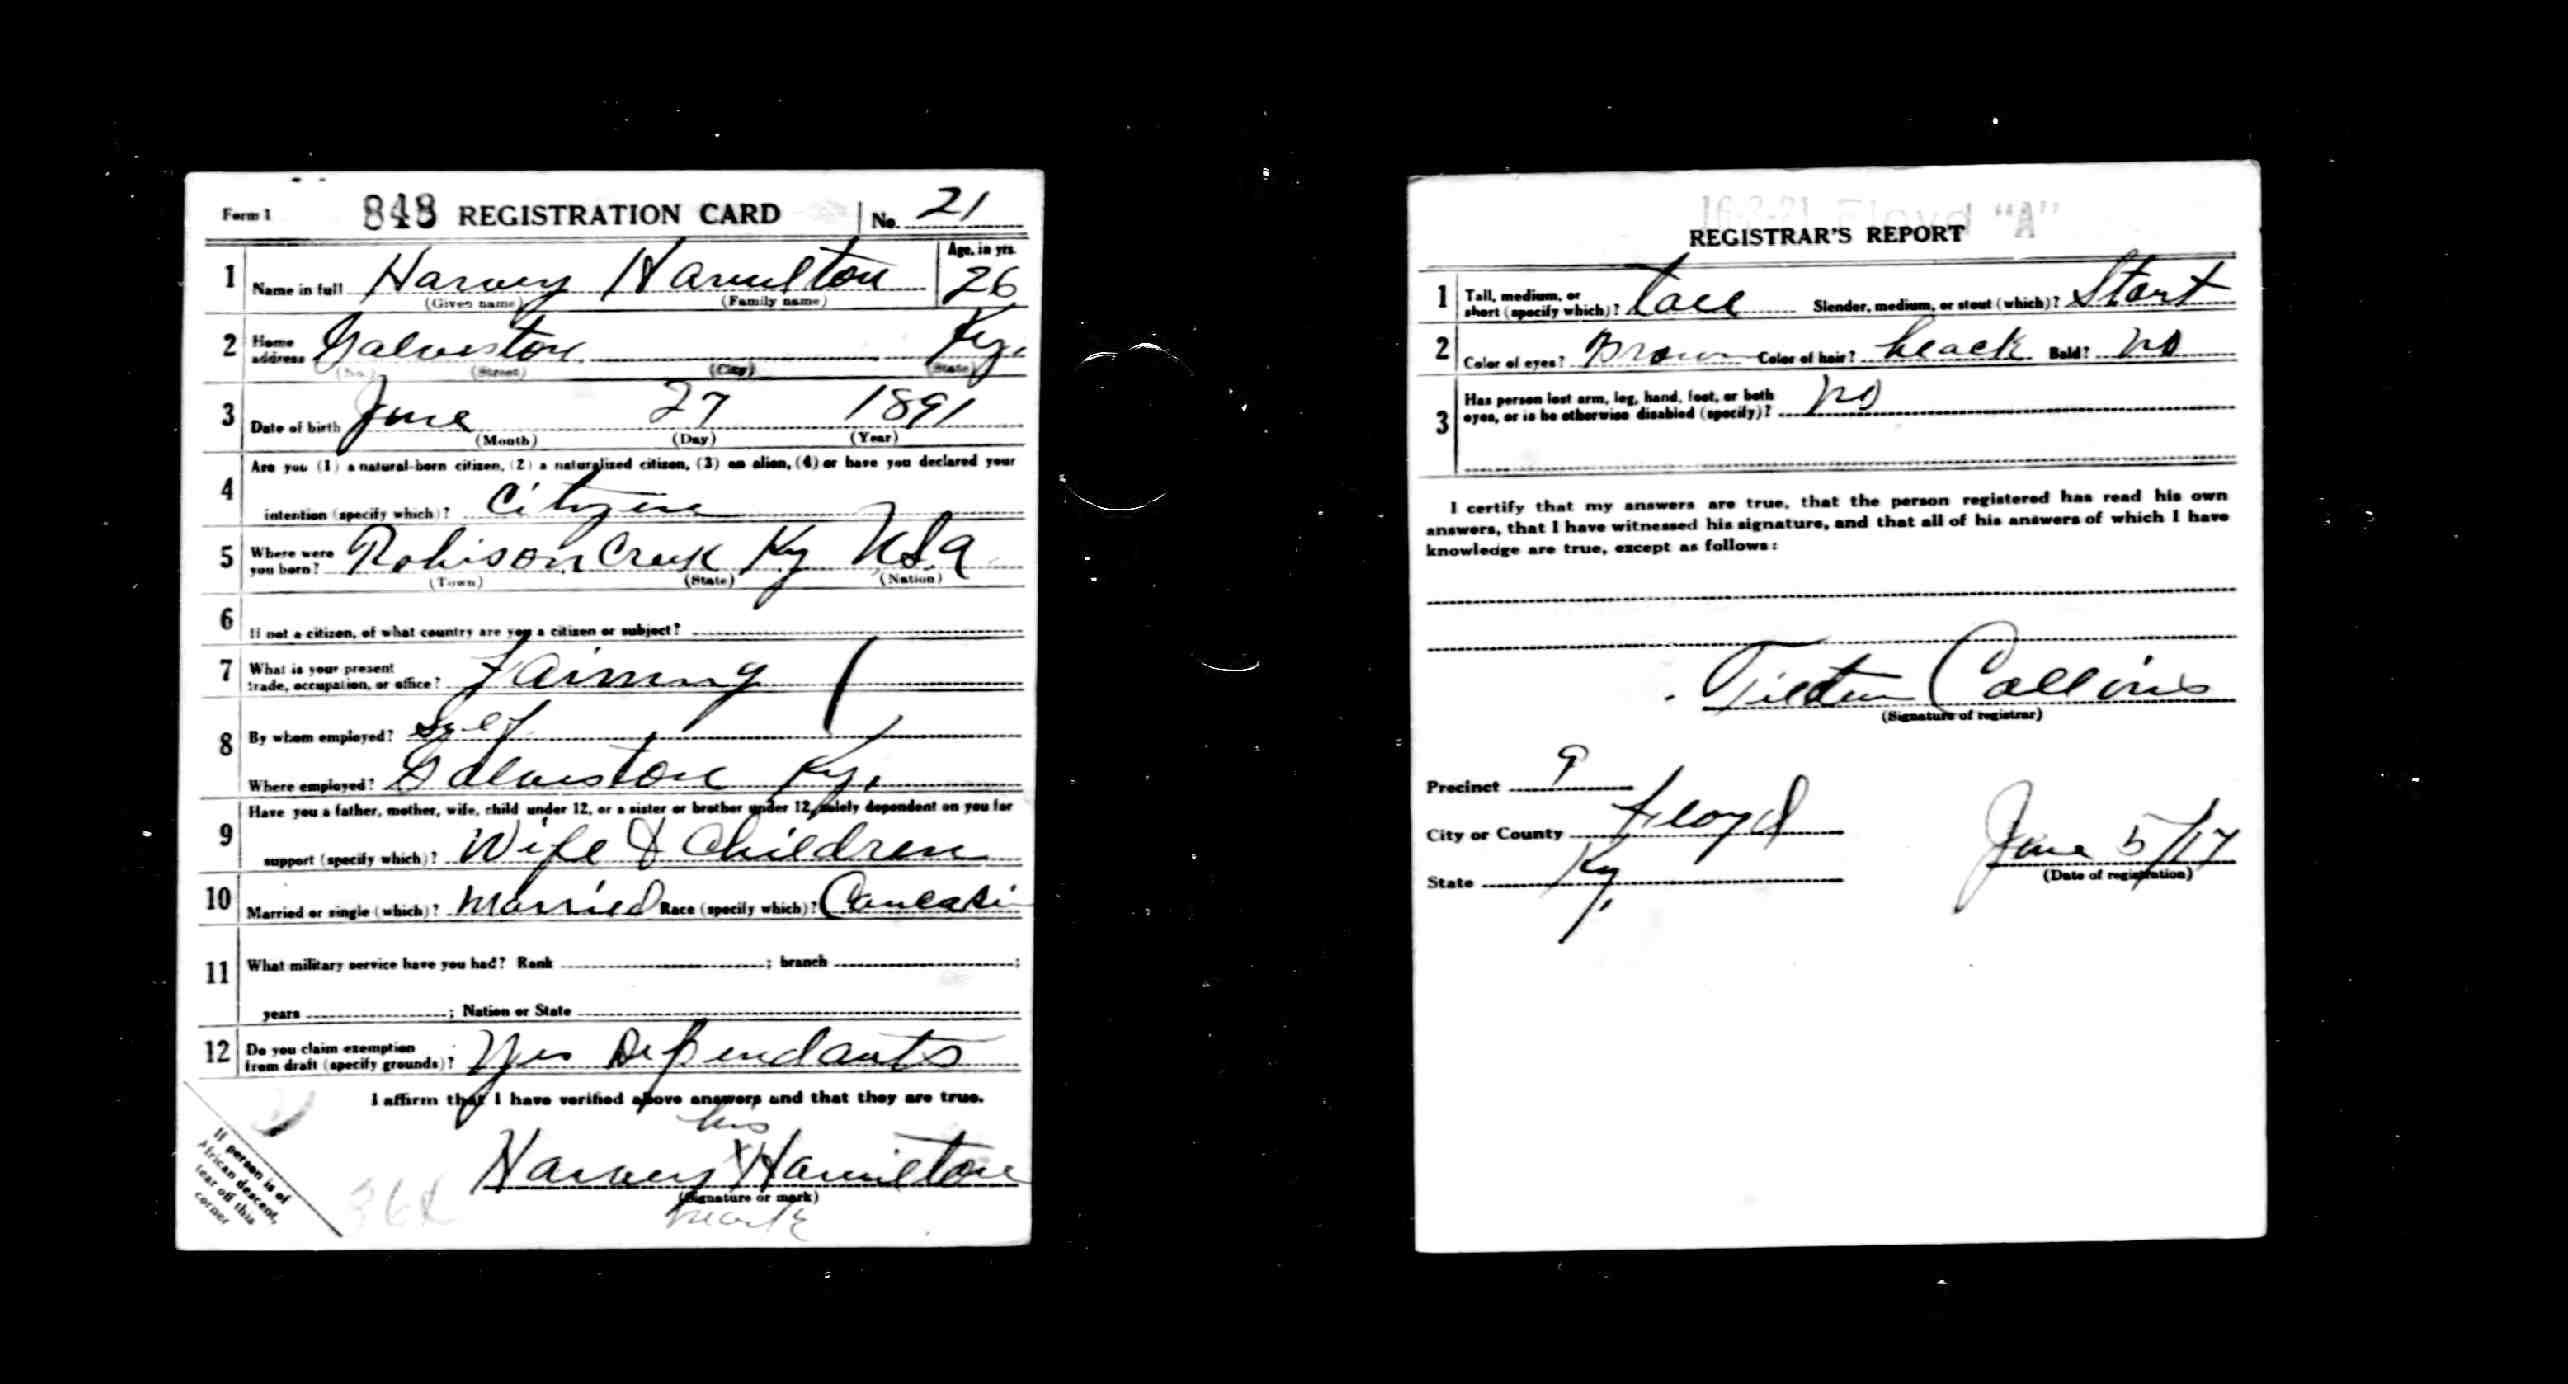 Form 1 848 REGISTRATION CARD No. 21
1 Name in full Harvey Hamilton Age, in yrs. 26
(Given name) (Family name)
2 Home address Galveston Ky.
(No.) (Street) (City) (State)
3 Date of birth June 27 1891
(Month) (Day) (Year)
4 Are you (1) a natural-born citizen, (2) a naturalized citizen, (3) an alien, (4) or have you declared your
intention (specify which)? Citizen
5 Where were you born? Robison Creek Ky USA
(Town) (State) (Nation)
6 If not a citizen, of what country are you a citizen or subject?
7 What is your present trade, occupation, or office? Farming
8 By whom employed? Self
Where employed? Galveston Ky.
9 Have you a father, mother, wife, child under 12, or a sister or brother under 12, solely dependent on you for
support (specify which)? Wife & Children
10 Married or single (which)? Married Race (specify which)? Caucasi
11 What military service have you had? Rank ; branch ;
years ; Nation or State
12 Do you claim exemption from draft (specify grounds)? Yes Dependants
I affirm that I have verified above answers and that they are true.
his
Harvey X Hamilton
(Signature or mark)
mark
If person is of
African descent,
tear off this
corner
16-3-21 Floyd "A"
REGISTRAR'S REPORT
1 Tall, medium, or short (specify which)? tall Slender, medium, or stout (which)? Stort
2 Color of eyes? Brown Color of hair? black Bald? no
3 Has person lost arm, leg, hand, foot, or both
eyes, or is he otherwise disabled (specify)? no
I certify that my answers are true, that the person registered has read his own
answers, that I have witnessed his signature, and that all of his answers of which I have
knowledge are true, except as follows:
Collins
(Signature of registrar)
Precinct 9
City or County Floyd
State Ky.
June 5/17
(Date of registration)